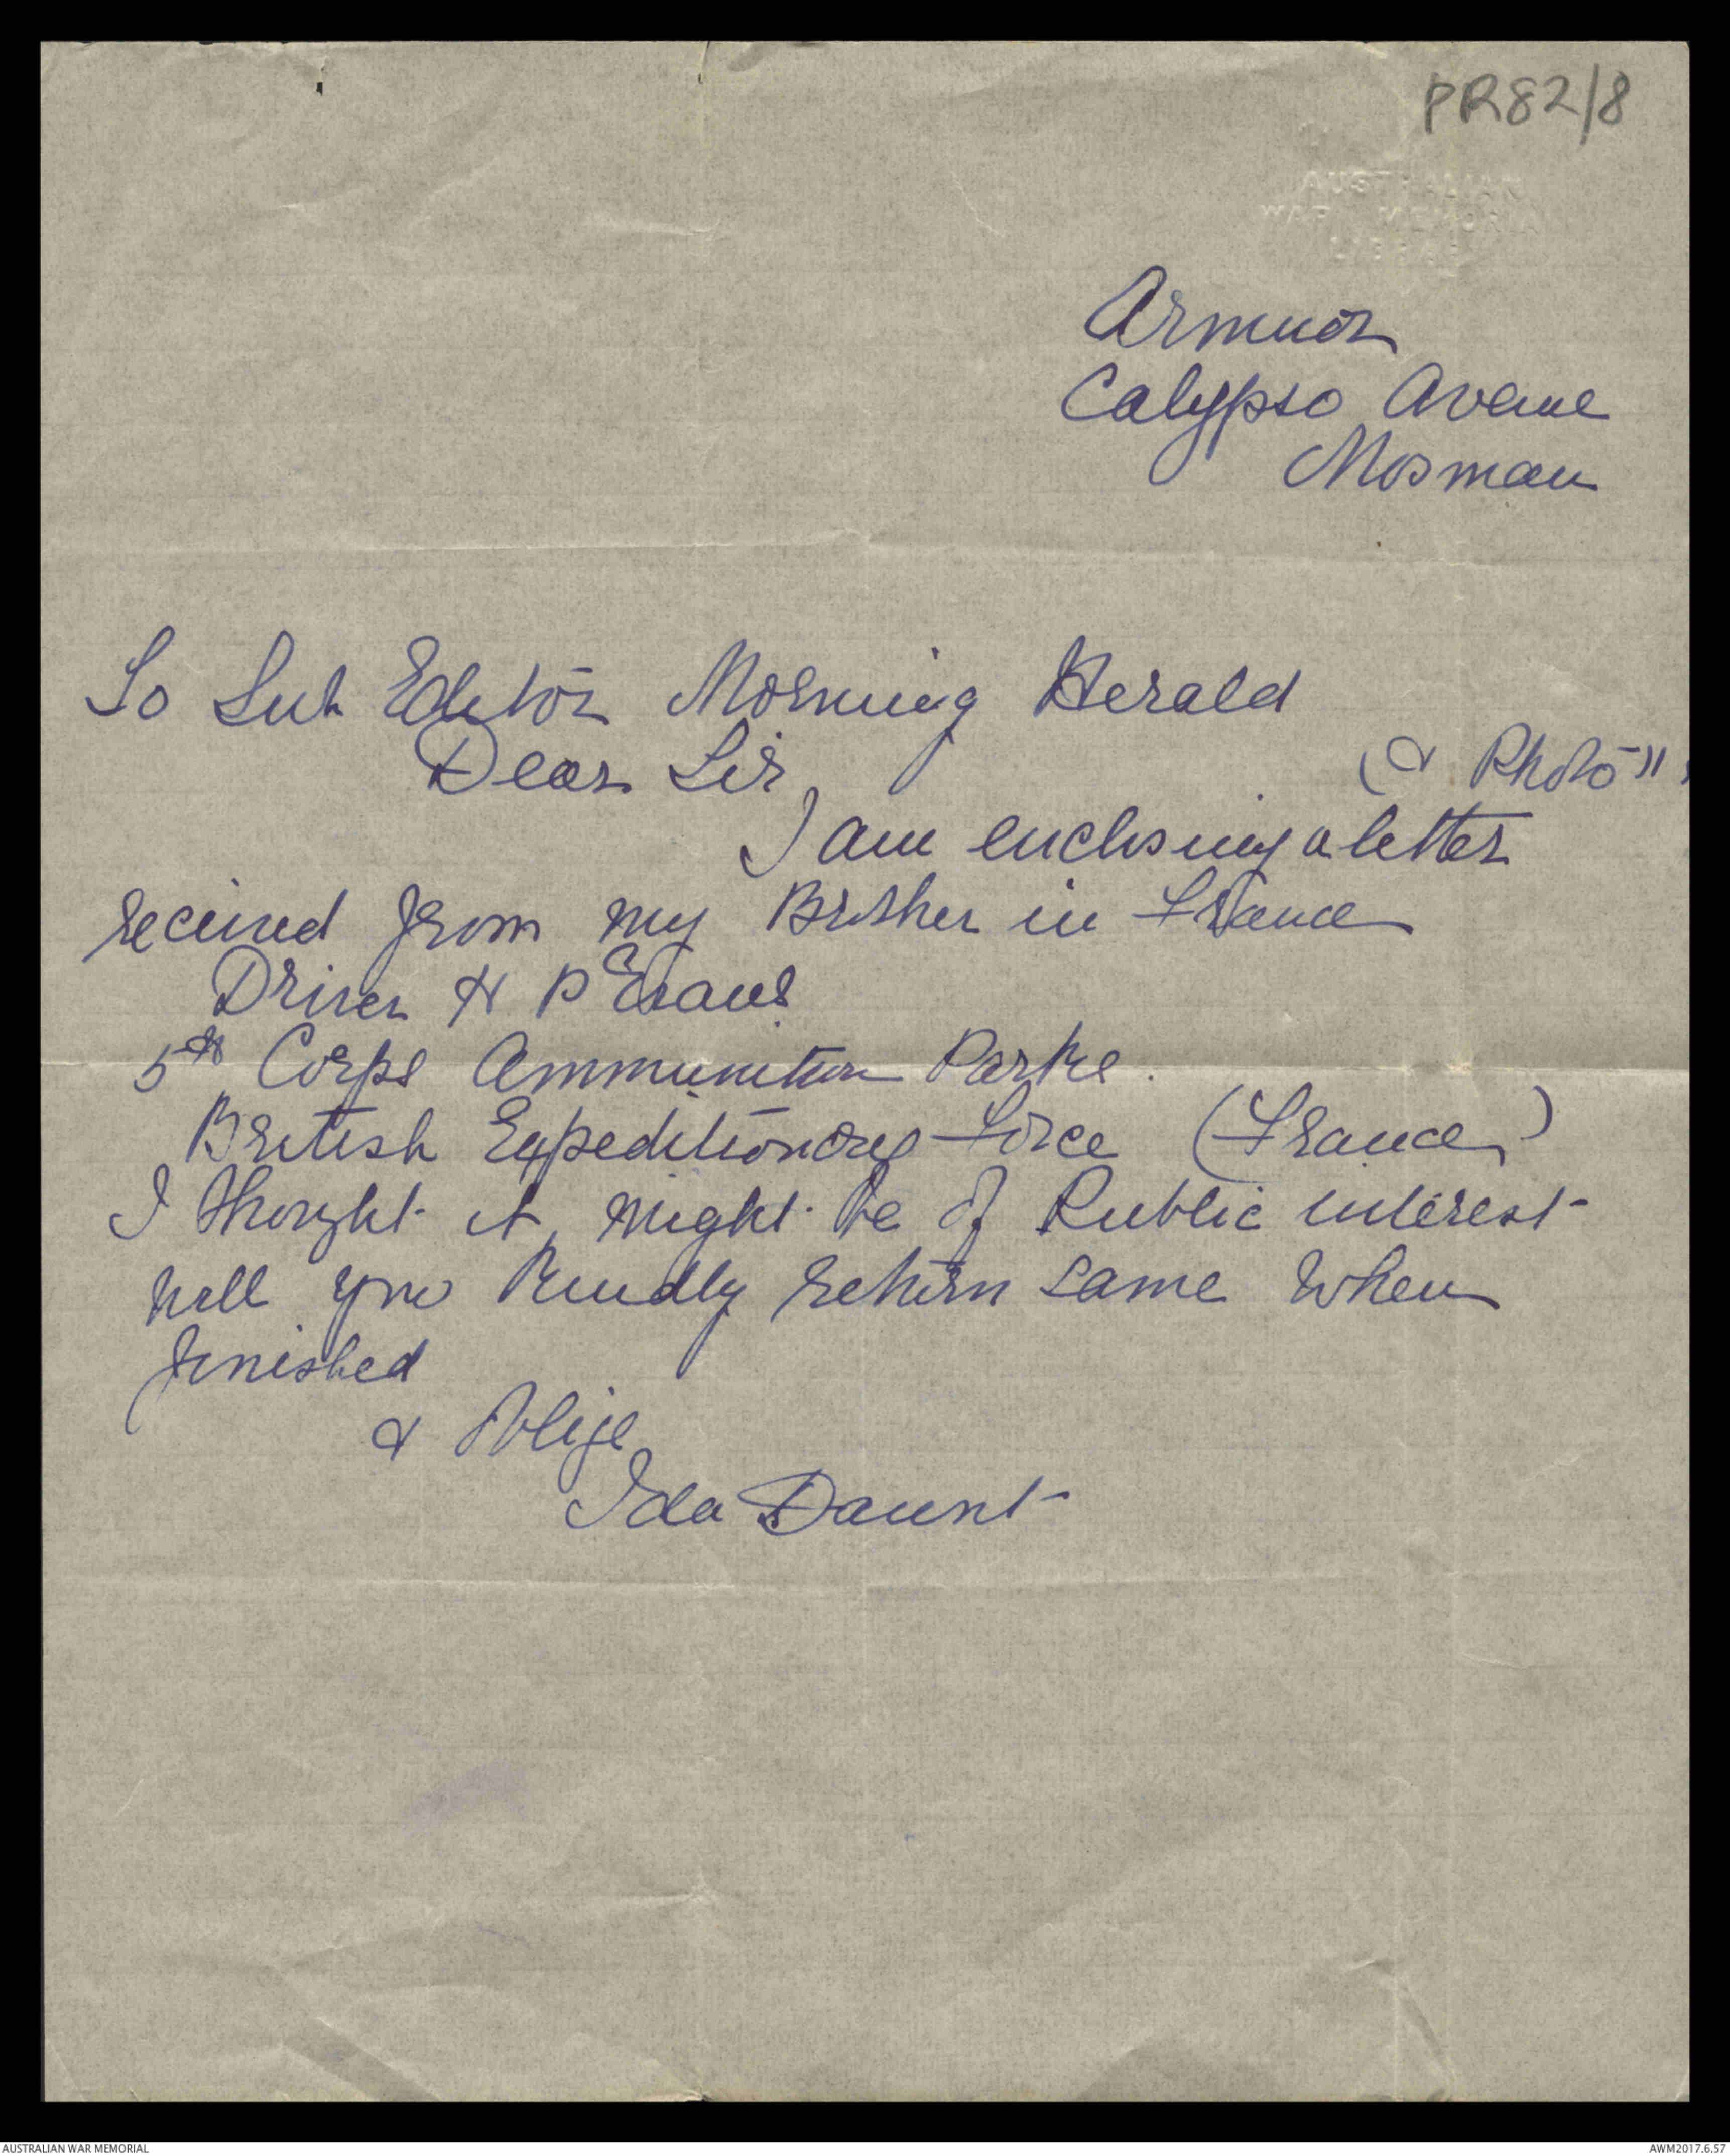 PR82/8
AUSTRALIAN
WAR MEMORIAL
LIBRARY
Armuor
Calypso Avenue
Mosman
To Sub Editor Morning Herald
Dear Sir
(& Photo")
I am enclosing a letter
received from my Brother in France
Driver H P Evans
5th Corps Ammunition Parke.
British Expeditionary Force (France)
I thought it might be of Public interest
will you kindly return same when
finished
& Oblige
Ida Daunt
AUSTRALIAN WAR MEMORIAL
AWM2017.6.57